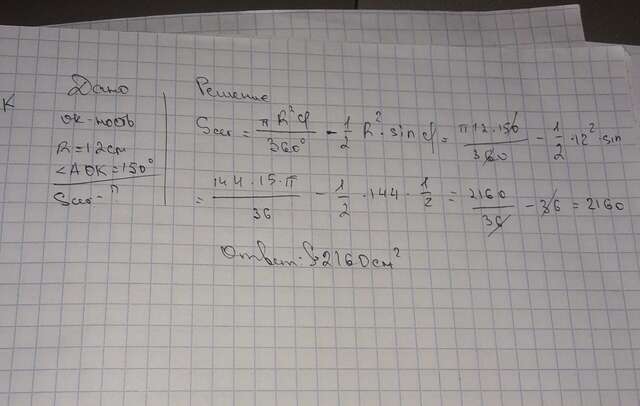 Дано
Решение
К
ок-ность
R=12см
∠AOK=150°
Sсег-?
Sсег = πR²φ/360° - 1/2 R²·sin φ = π12·150/360 - 1/2·12²·sin
= 144·15·π/36 - 1/2·144·1/2 = 2160/36 - 36 = 2160
Ответ: S=2160см²